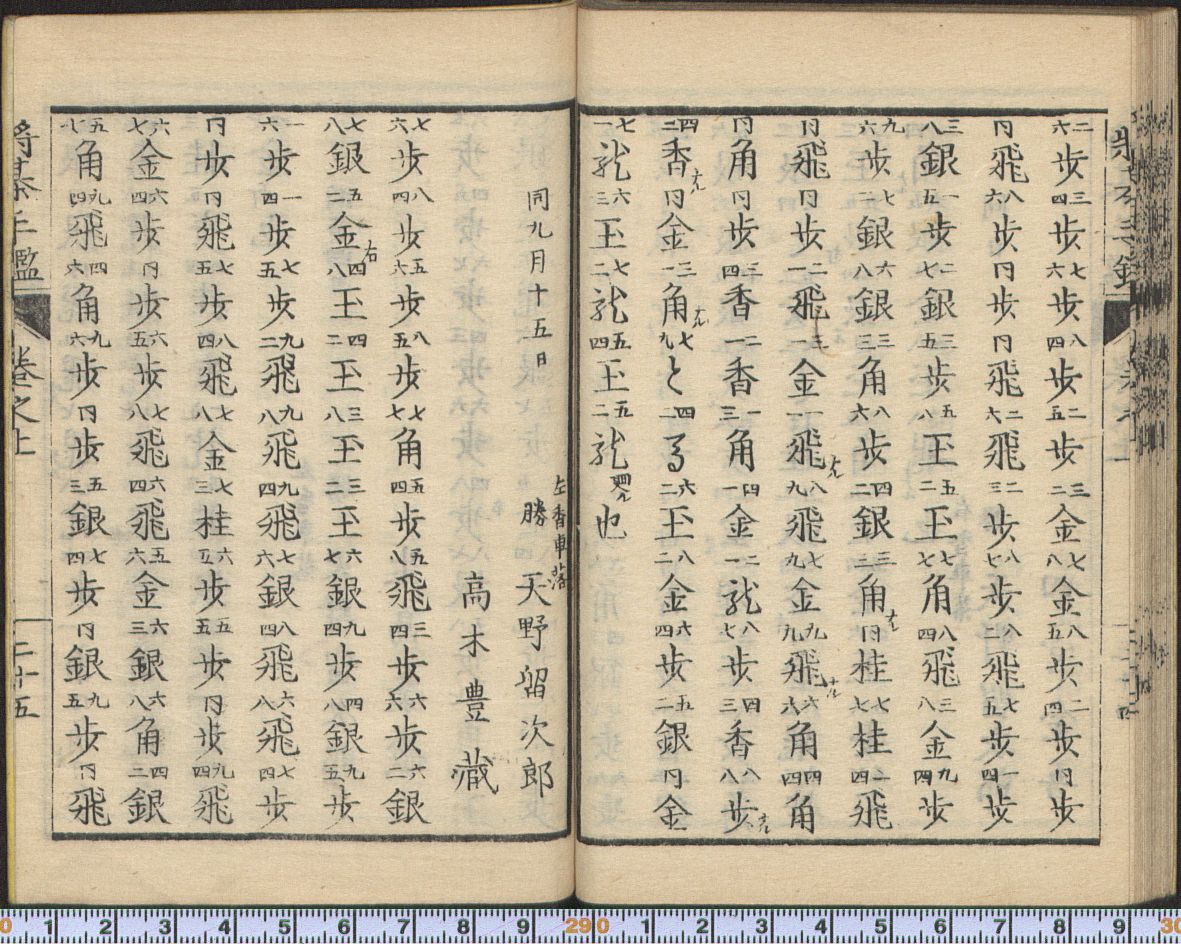 二六歩三四歩七六歩八四歩二五歩三二金七八金八五歩二四歩同歩
同飛八六歩同歩同飛二六飛二三歩八七歩八二飛七五歩一四歩
三八銀一五歩二七銀三五歩五八玉五二玉七七角八四飛三八金九四歩
九六歩七二銀六八銀三三角八六歩四二銀三三角ナル同桂七七桂二四飛
同飛同歩二一飛三一金一一飛ナル八九飛七九金九九飛ナル六八角四四角
同角同歩三四香一二香一三角四一金二一龍八七歩四三香八八歩ナル
四二香ナル同金三一角ナル七九と四二馬六二玉八二金六四歩五二銀同金
七一龍六三玉七二龍五四玉五二龍也
同九月十五日
左香車落
勝 天野留次郎
高木豊蔵
七六歩八四歩五六歩八五歩七七角五四歩五八飛三四歩六六歩六二銀
七八銀五二金右四八玉四二玉三八玉三二玉六七銀九四歩四八銀九五歩
一六歩一四歩七五歩九二飛九八飛九四飛七六銀八四飛六八飛七四歩
同歩同飛七五歩八四飛七八金七三桂六五歩五五歩同歩九四飛
六七金六四歩同歩六五歩七八飛六四飛五六金六三銀六八角四二銀
五七角九四飛四六角九六歩同歩五三銀七四歩同銀九五歩同飛
将棊手鑑 巻之上 二十五